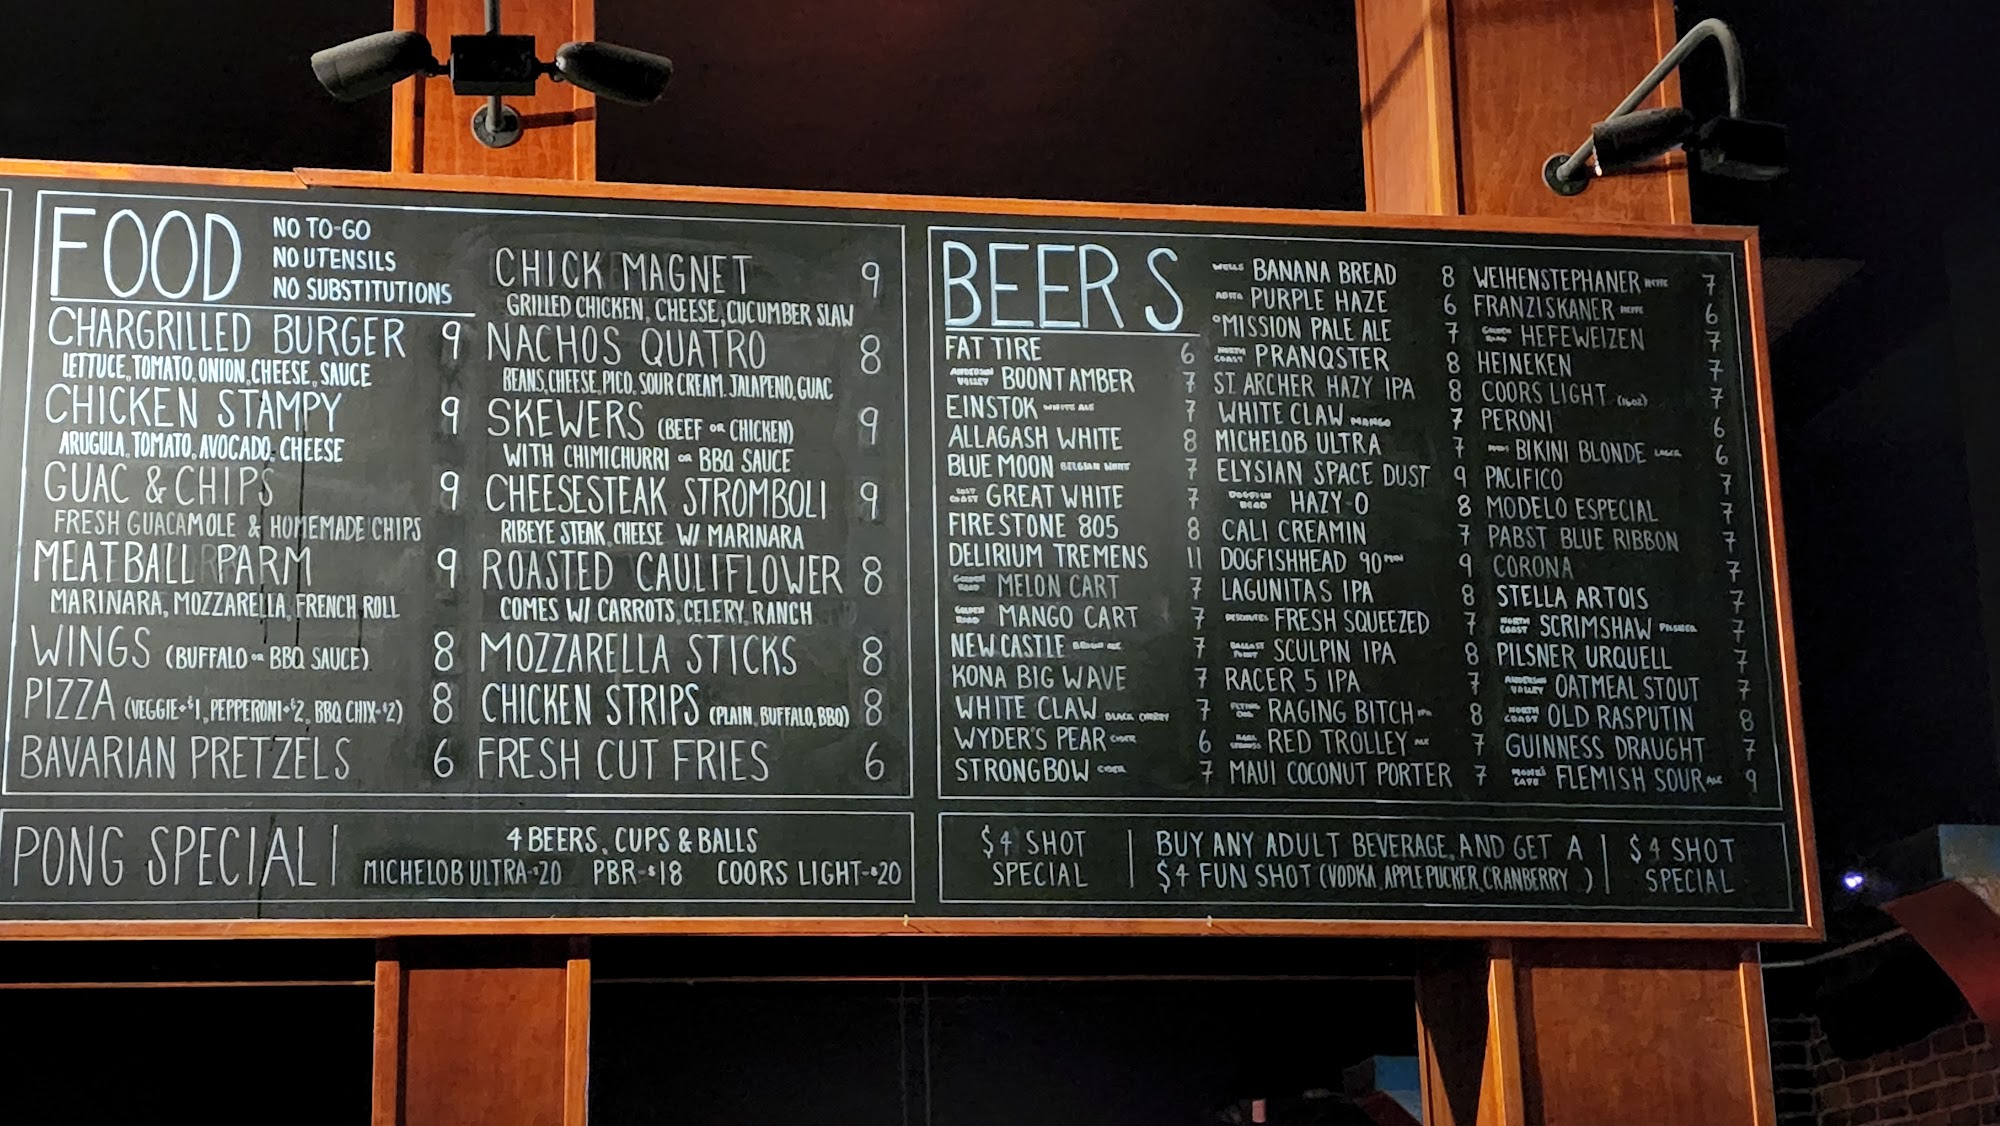 FOOD
NO TO-GO
NO UTENSILS
NO SUBSTITUTIONS
CHARGRILLED BURGER 9
LETTUCE, TOMATO, ONION, CHEESE, SAUCE
CHICKEN STAMPY 9
ARUGULA, TOMATO, AVOCADO, CHEESE
GUAC & CHIPS 9
FRESH GUACAMOLE & HOMEMADE CHIPS
MEATBALL PARM 9
MARINARA, MOZZARELLA, FRENCH ROLL
WINGS (BUFFALO OR BBQ SAUCE) 8
PIZZA (VEGGIE+$1, PEPPERONI+$2, BBQ CHIX+$2) 8
BAVARIAN PRETZELS 6
CHICK MAGNET 9
GRILLED CHICKEN, CHEESE, CUCUMBER SLAW
NACHOS QUATRO 8
BEANS, CHEESE, PICO, SOUR CREAM, JALAPENO, GUAC
SKEWERS (BEEF OR CHICKEN) 9
WITH CHIMICHURRI OR BBQ SAUCE
CHEESESTEAK STROMBOLI 9
RIBEYE STEAK, CHEESE W/ MARINARA
ROASTED CAULIFLOWER 8
COMES W/ CARROTS, CELERY, RANCH
MOZZARELLA STICKS 8
CHICKEN STRIPS (PLAIN, BUFFALO, BBQ) 8
FRESH CUT FRIES 6
PONG SPECIAL!
4 BEERS, CUPS & BALLS
MICHELOB ULTRA-$20 PBR-$18 COORS LIGHT-$20
BEERS
FAT TIRE 6
ANDERSON VALLEY BOONT AMBER 7
EINSTOK WHITE ALE 7
ALLAGASH WHITE 8
BLUE MOON BELGIAN WHITE 7
LOST COAST GREAT WHITE 7
FIRESTONE 805 8
DELIRIUM TREMENS 11
GOLDEN ROAD MELON CART 7
GOLDEN ROAD MANGO CART 7
NEWCASTLE BROWN ALE 7
KONA BIG WAVE 7
WHITE CLAW BLACK CHERRY 7
WYDER'S PEAR CIDER 6
STRONGBOW CIDER 7
WELLS BANANA BREAD 8
ABITA PURPLE HAZE 6
MISSION PALE ALE 7
NORTH COAST PRANQSTER 8
ST. ARCHER HAZY IPA 8
WHITE CLAW MANGO 7
MICHELOB ULTRA 7
ELYSIAN SPACE DUST 9
DOGFISH HEAD HAZY-O 8
CALI CREAMIN 7
DOGFISHHEAD 90 MIN 9
LAGUNITAS IPA 8
DESCHUTES FRESH SQUEEZED 7
BALLAST POINT SCULPIN IPA 8
RACER 5 IPA 7
FLYING DOG RAGING BITCH IPA 8
KARL STRAUSS RED TROLLEY ALE 7
MAUI COCONUT PORTER 7
WEIHENSTEPHANER HEFE 7
FRANZISKANER HEFE 6
GOLDEN ROAD HEFEWEIZEN 7
HEINEKEN 7
COORS LIGHT (16oz) 7
PERONI 6
MAUI BIKINI BLONDE LAGER 6
PACIFICO 7
MODELO ESPECIAL 7
PABST BLUE RIBBON 7
CORONA 7
STELLA ARTOIS 7
NORTH COAST SCRIMSHAW PILSNER 7
PILSNER URQUELL 7
ANDERSON VALLEY OATMEAL STOUT 7
NORTH COAST OLD RASPUTIN 8
GUINNESS DRAUGHT 7
MONK'S CAFE FLEMISH SOUR ALE 9
$4 SHOT SPECIAL
BUY ANY ADULT BEVERAGE, AND GET A
$4 FUN SHOT (VODKA, APPLE PUCKER, CRANBERRY )
$4 SHOT SPECIAL